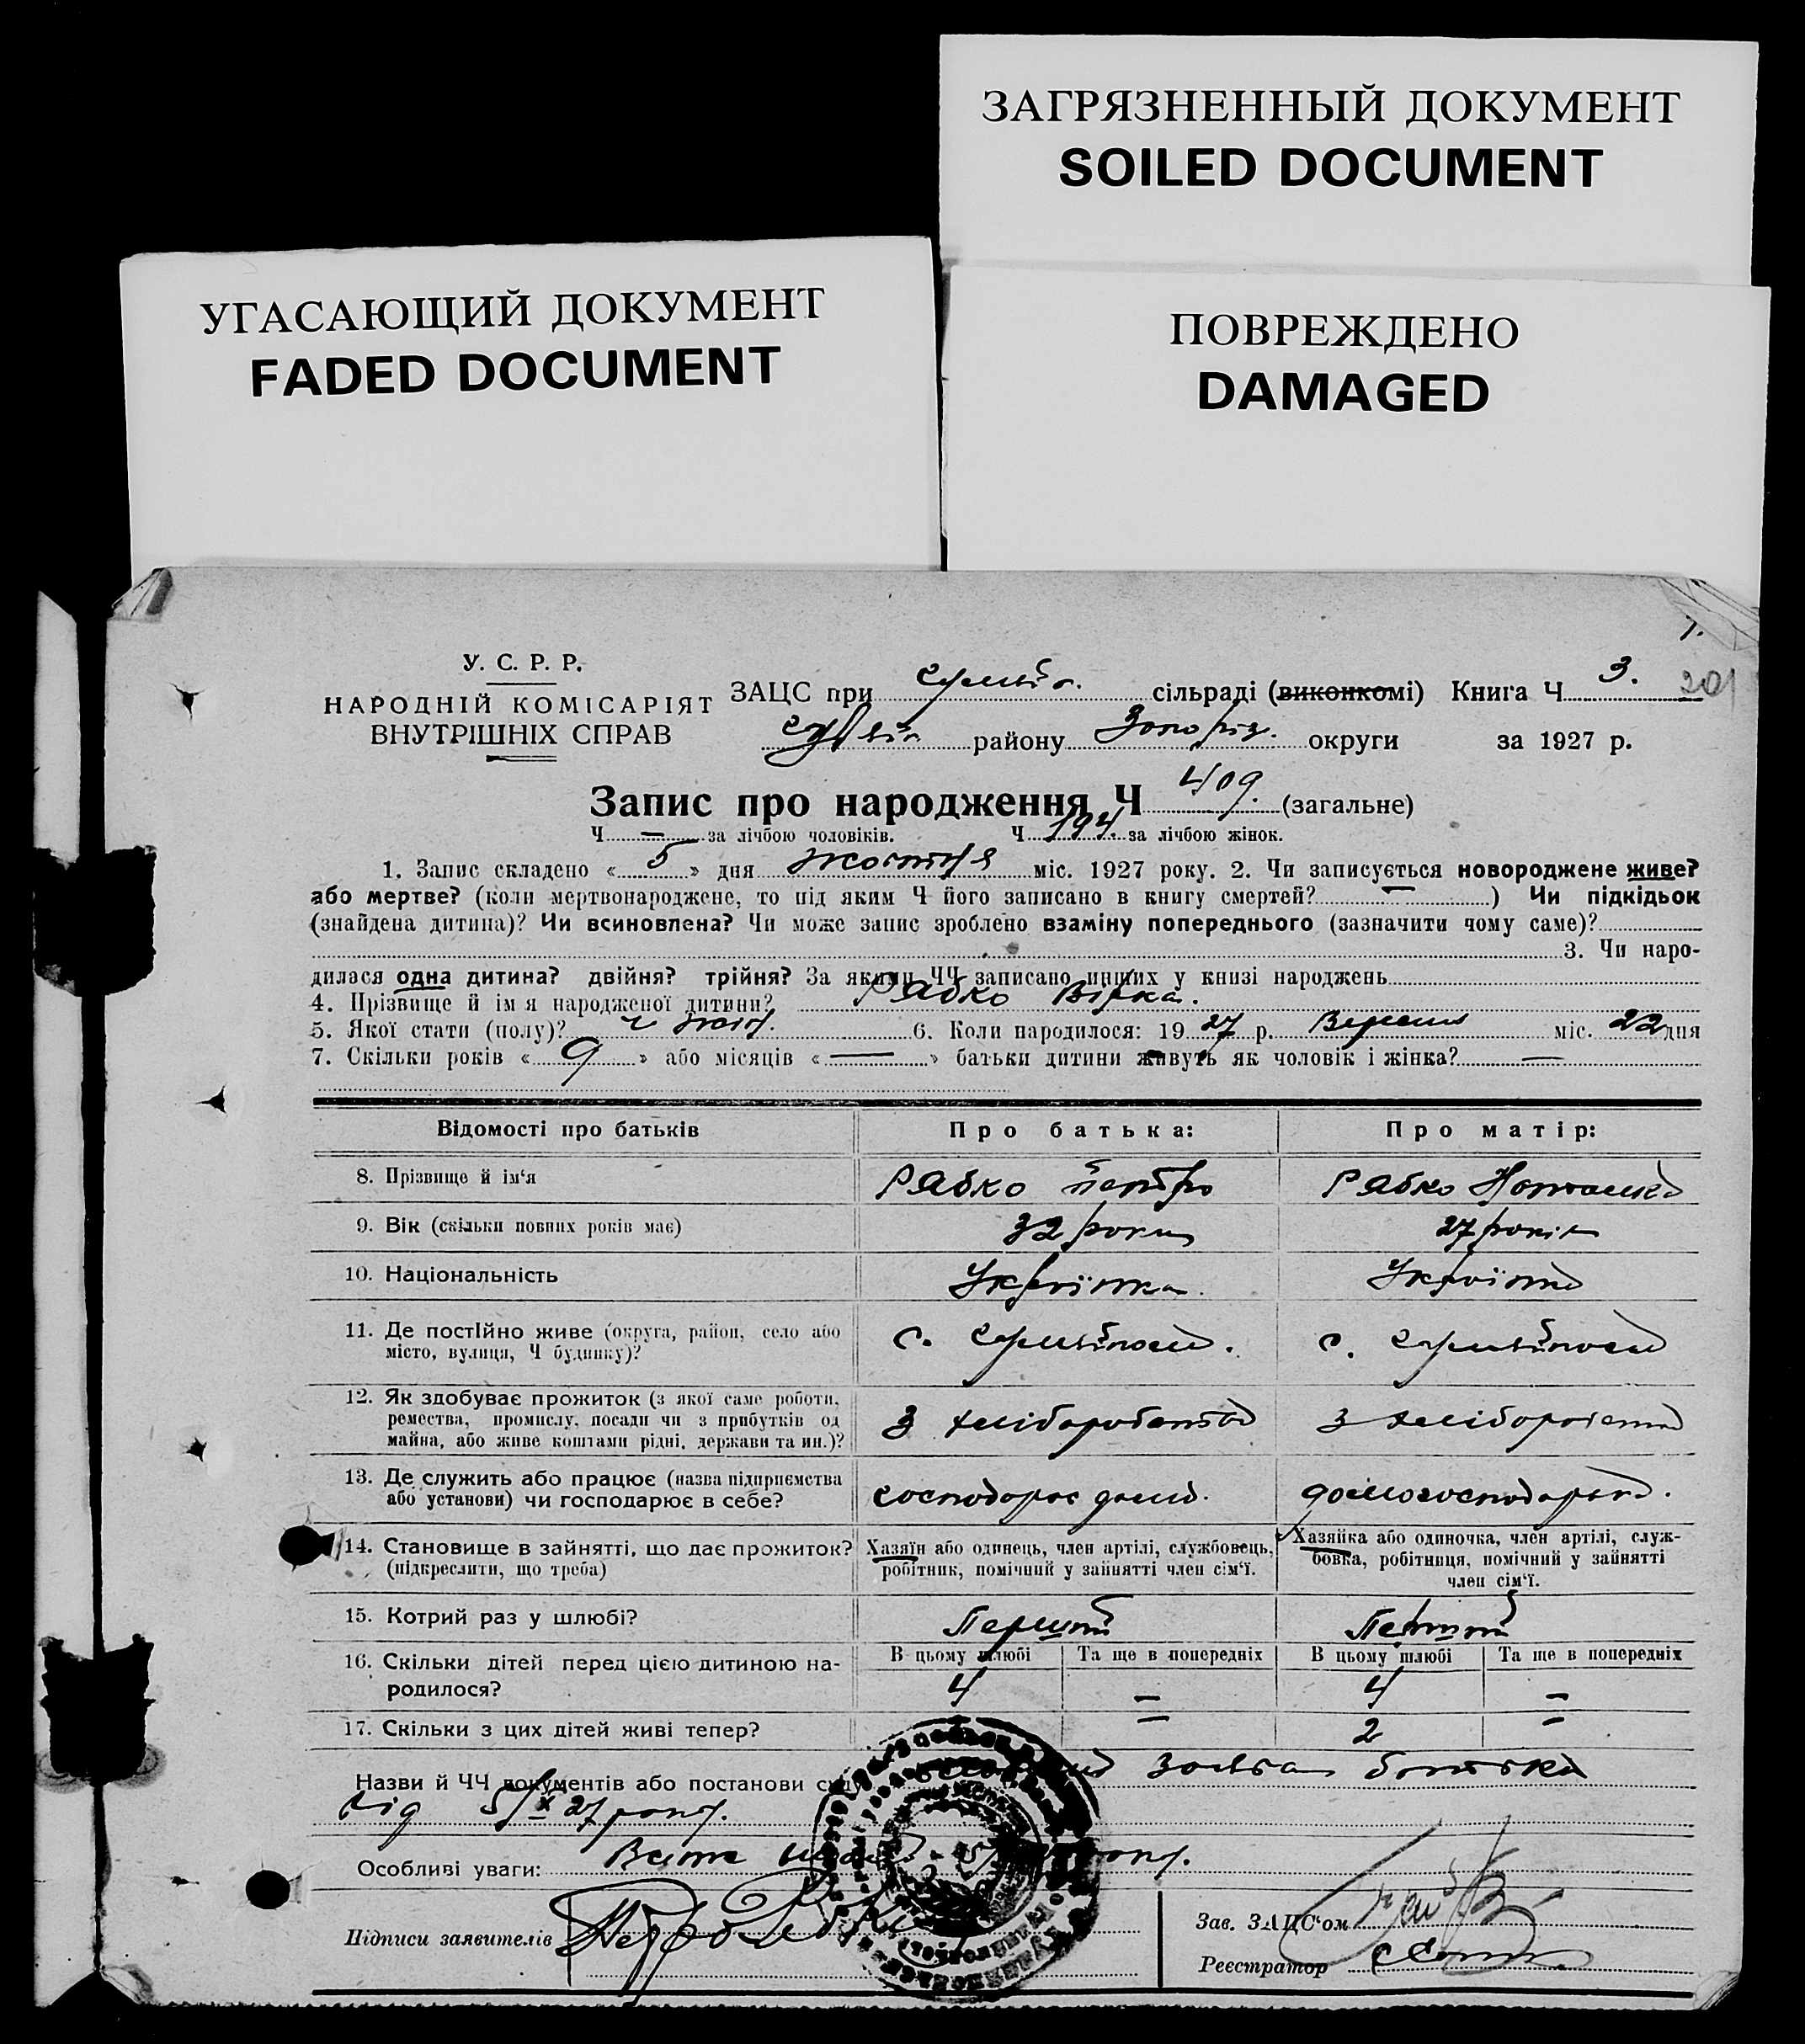 ЗАГРЯЗНЕННЫЙ ДОКУМЕНТ
SOILED DOCUMENT
УГАСАЮЩИЙ ДОКУМЕНТ
FADED DOCUMENT
ПОВРЕЖДЕНО
DAMAGED
У. С. Р. Р.
НАРОДНІЙ КОМІСАРІЯТ
ВНУТРІШНІХ СПРАВ
ЗАЦС при сільраді (виконкомі) Книга Ч 3. 201
району Запоріз. округи за 1927 р.
Запис про народження Ч 409. (загальне)
Ч — за лічбою чоловіків. Ч 194. за лічбою жінок.
1. Запис складено « 5 » дня жовтня міс. 1927 року. 2. Чи записується новороджене живе?
або мертве? (коли мертвонароджене, то під яким Ч його записано в книгу смертей? — ) Чи підкідьок
(знайдена дитина)? Чи всиновлена? Чи може запис зроблено взаміну попереднього (зазначити чому саме)?
3. Чи наро-
дилася одна дитина? двійня? трійня? За якими ЧЧ записано инших у книзі народжень
4. Прізвище й ім я народженої дитини? Рябко Вірка.
5. Якої стати (полу)? жін. 6. Коли народилося: 19 27 р. Вересня міс. 22 дня
7. Скільки років « 9 » або місяців « — » батьки дитини живуть як чоловік і жінка? —
Відомості про батьків Про батька: Про матір:
8. Прізвище й ім‘я Рябко Петро Рябко Наталка
9. Вік (скільки повних років має) 32 роки 27 років
10. Національність Українка Українка
11. Де постійно живе (округа, район, село або
місто, вулиця, Ч будинку)? с. с.
12. Як здобуває прожиток (з якої саме роботи,
ремества, промислу, посади чи з прибутків од
майна, або живе коштами рідні, держави та ин.)? З хліборобства З хліборобства
13. Де служить або працює (назва підприємства
або установи) чи господарює в себе? господарює дома. домогосподарка.
14. Становище в зайнятті, що дає прожиток?
(підкреслити, що треба)
Хазяїн або одинець, член артілі, службовець,
робітник, помічний у зайнятті член сім‘ї.
Хазяйка або одиночка, член артілі, служ-
бовка, робітниця, помічний у зайнятті
член сім‘ї.
15. Котрий раз у шлюбі? Перший Перший
В цьому шлюбі Та ще в попередніх В цьому шлюбі Та ще в попередніх
16. Скільки дітей перед цією дитиною на-
родилося? 4 — 4 —
17. Скільки з цих дітей живі тепер? — 2 —
Назви й ЧЧ документів або постанови суду заява батька
від 5/X 27 року.
Особливі уваги: року.
Підписи заявителів
Зав. ЗАЦС‘ом
Реєстратор